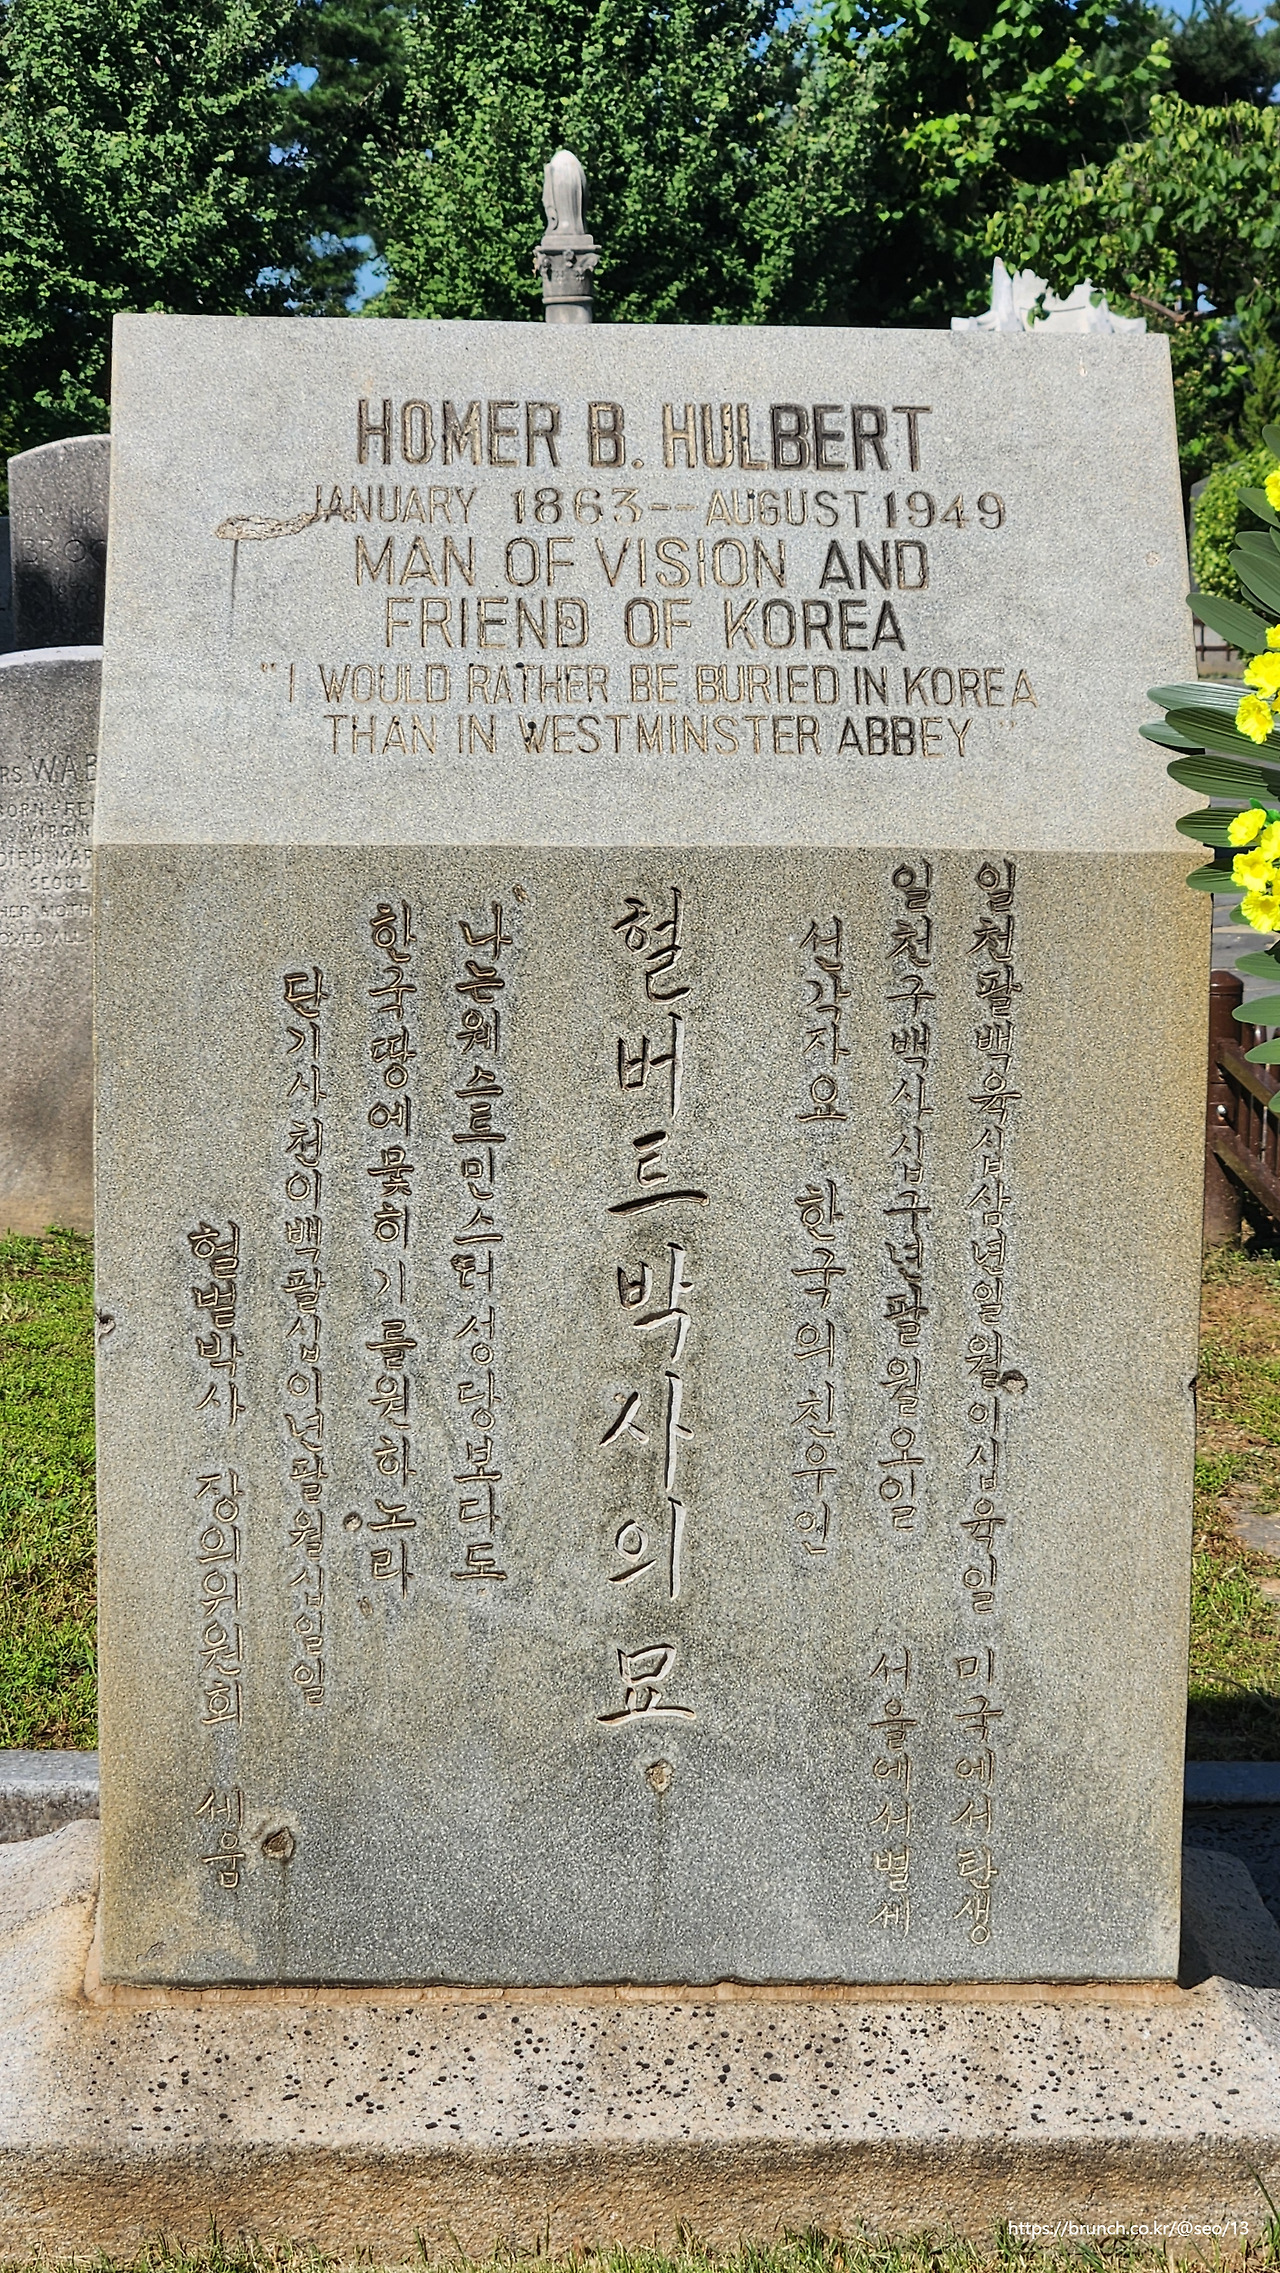 HOMER B. HULBERT
JANUARY 1863--AUGUST 1949
MAN OF VISION AND
FRIEND OF KOREA
"I WOULD RATHER BE BURIED IN KOREA
THAN IN WESTMINSTER ABBEY"
일천팔백육십삼년일월이십육일 미국에서탄생
일천구백사십구년팔월오일 서울에서별세
선각자요 한국의친우인
헐버트박사의묘
"나는웨스트민스터성당보다도
한국땅에묻히기를원하노라
단기사천이백팔십이년팔월십일일
헐벝박사 장의위원회 세움
BROC
RS W.A.B
BORN FE
VIRGIN
DIED MAR
SEOUL
HER MOTH
https://brunch.co.kr/@seo/13